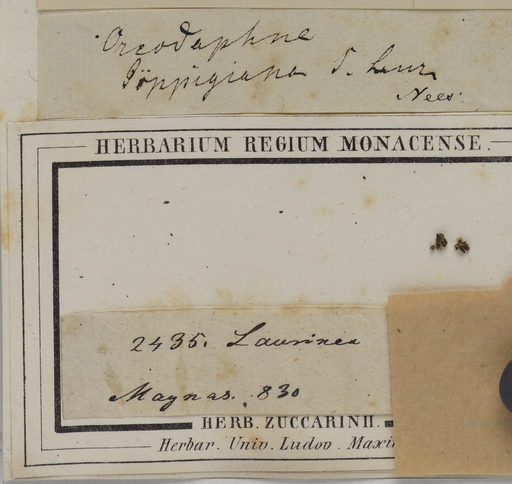 Oreodaphne
Pöppigiana
Nees.
HERBARIUM REGIUM MONACENSE.
2435. Laurinea
Maynas. 830
HERB. ZUCCARINII.
Herbar. Univ. Ludov.